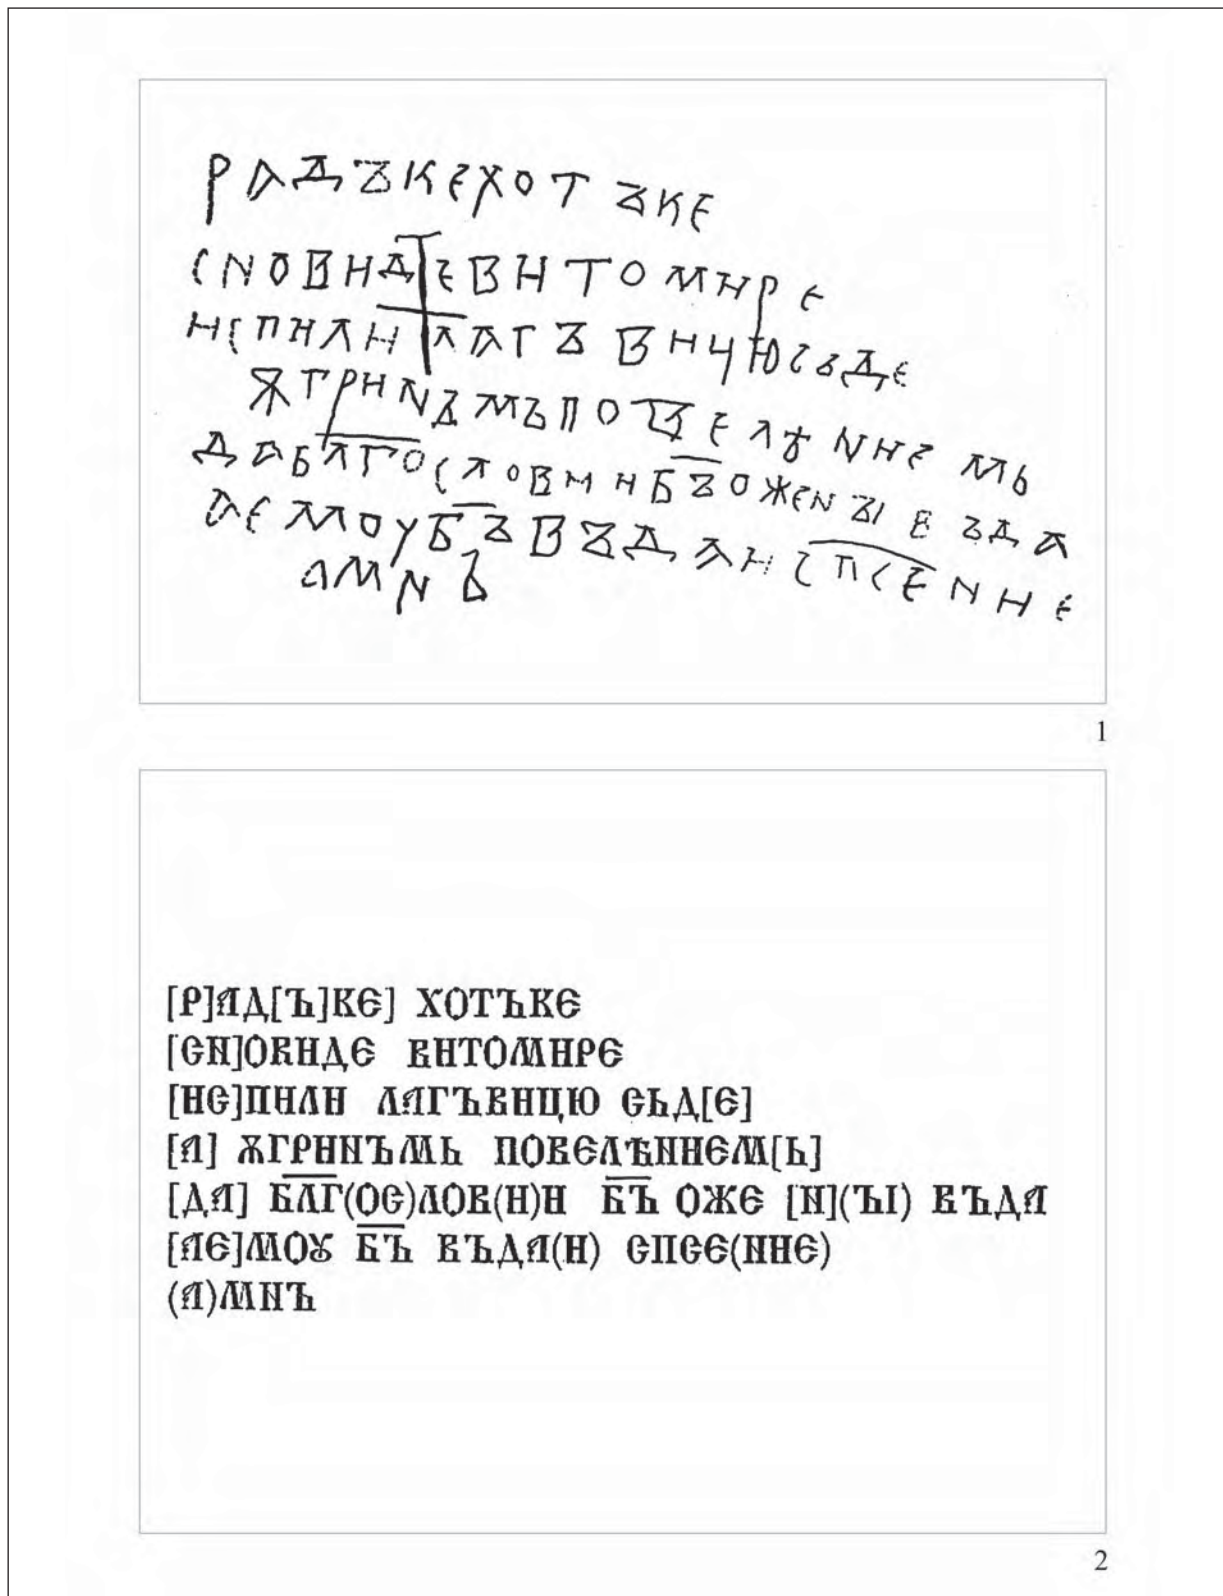 РАДЪКЕХОТЪКЕ
СNОВНДЕВНТОМНРЕ
НСПНЛНЛАГЪВНЦЮСЬДЕ
ѪГРНNЪМЬПОВЕЛꙊNНЕМЬ
ДАБЛГОСЛОВННБЪОЖЕNЪІВЪДА
АЕМОУБЪВЪДАНСПСЕNНЕ
АМNЪ
1
[Р]АД[Ъ]КЄ] ХОТЪКЄ
[СN]ОВНДЄ ВНТОМНРЄ
[НС]ПНЛН ЛАГЪВНЦЮ СЬД[Є]
[А] ѪГРННЪМЬ ПОВЄЛѢNНЄМ[Ь]
[ДА] БЛГ(ОС)ЛОВ(Н)Н БЪ ОЖЄ [N](ЪІ) ВЪДА
[АЄ]МОꙊ БЪ ВЪДА(Н) СПСЄ(NНЄ)
(А)МNЪ
2